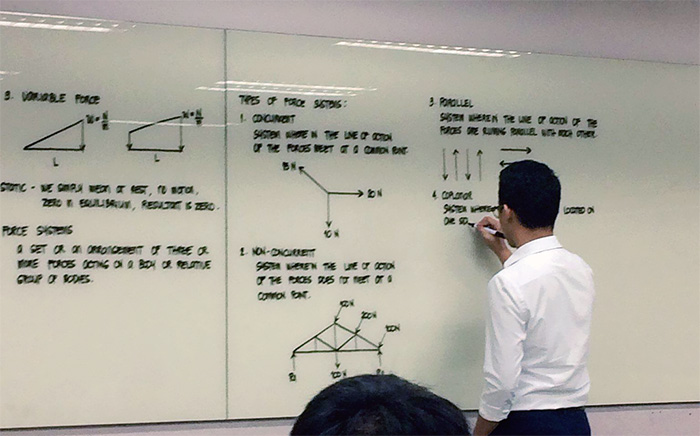 3. VARIABLE FORCE
W = N/m
W = N/m
L
L
STATIC - WE SIMPLY MEAN AT REST, NO MOTION,
ZERO IN EQUILIBRIUM, RESULTANT IS ZERO.
FORCE SYSTEMS
A SET OR AN ARRANGEMENT OF THREE OR
MORE FORCES ACTING ON A BODY OR RELATIVE
GROUP OF BODIES.
TYPES OF FORCE SYSTEMS:
1. CONCURRENT
SYSTEM WHERE IN THE LINE OF ACTION
OF THE FORCES MEET AT A COMMON POINT.
15 N
20 N
10 N
2. NON-CONCURRENT
SYSTEM WHEREIN THE LINE OF ACTION
OF THE FORCES DOES NOT MEET AT A
COMMON POINT.
100N
200N
100N
100 N
3. PARALLEL
SYSTEM WHEREIN THE LINE OF ACTION OF THE
FORCES ARE RUNING PARALLEL WITH EACH OTHER.
4. COPLANAR
SYSTEM WHERE LOCATED ON
ONE